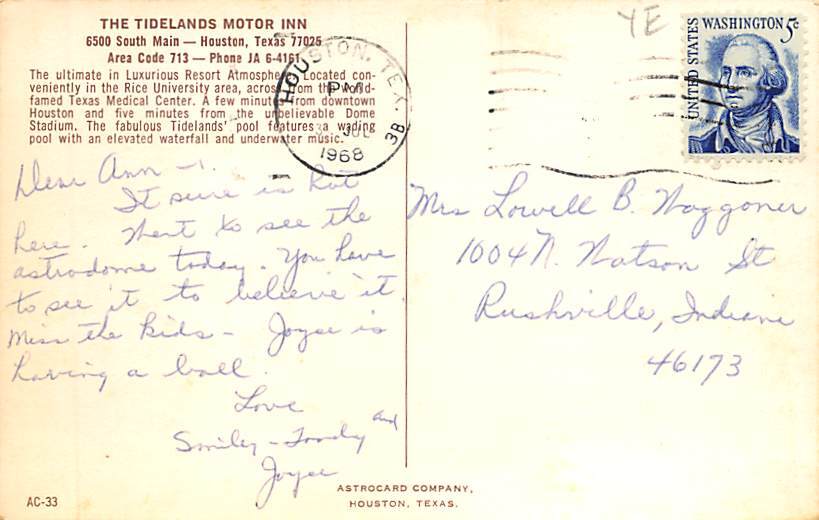 THE TIDELANDS MOTOR INN
6500 South Main — Houston, Texas 77025
Area Code 713 — Phone JA 6-4161
The ultimate in Luxurious Resort Atmosphere. Located con-
veniently in the Rice University area, across from the world-
famed Texas Medical Center. A few minutes from downtown
Houston and five minutes from the unbelievable Dome
Stadium. The fabulous Tidelands' pool features a wading
pool with an elevated waterfall and underwater music.
HOUSTON, TEX.
PM
JUL
1968
38
YE
UNITED STATES
WASHINGTON 5¢
Dear Ann -
It sure is hot
here. Went to see the
astrodome today. You have
to see it to believe it
Miss the kids - Joyce is
having a ball.
Love
Smiley - and
Joyce
Mrs Lowell B. Waggoner
1004 N. Watson St
Rushville, Indiana
46173
AC-33
ASTROCARD COMPANY,
HOUSTON, TEXAS.